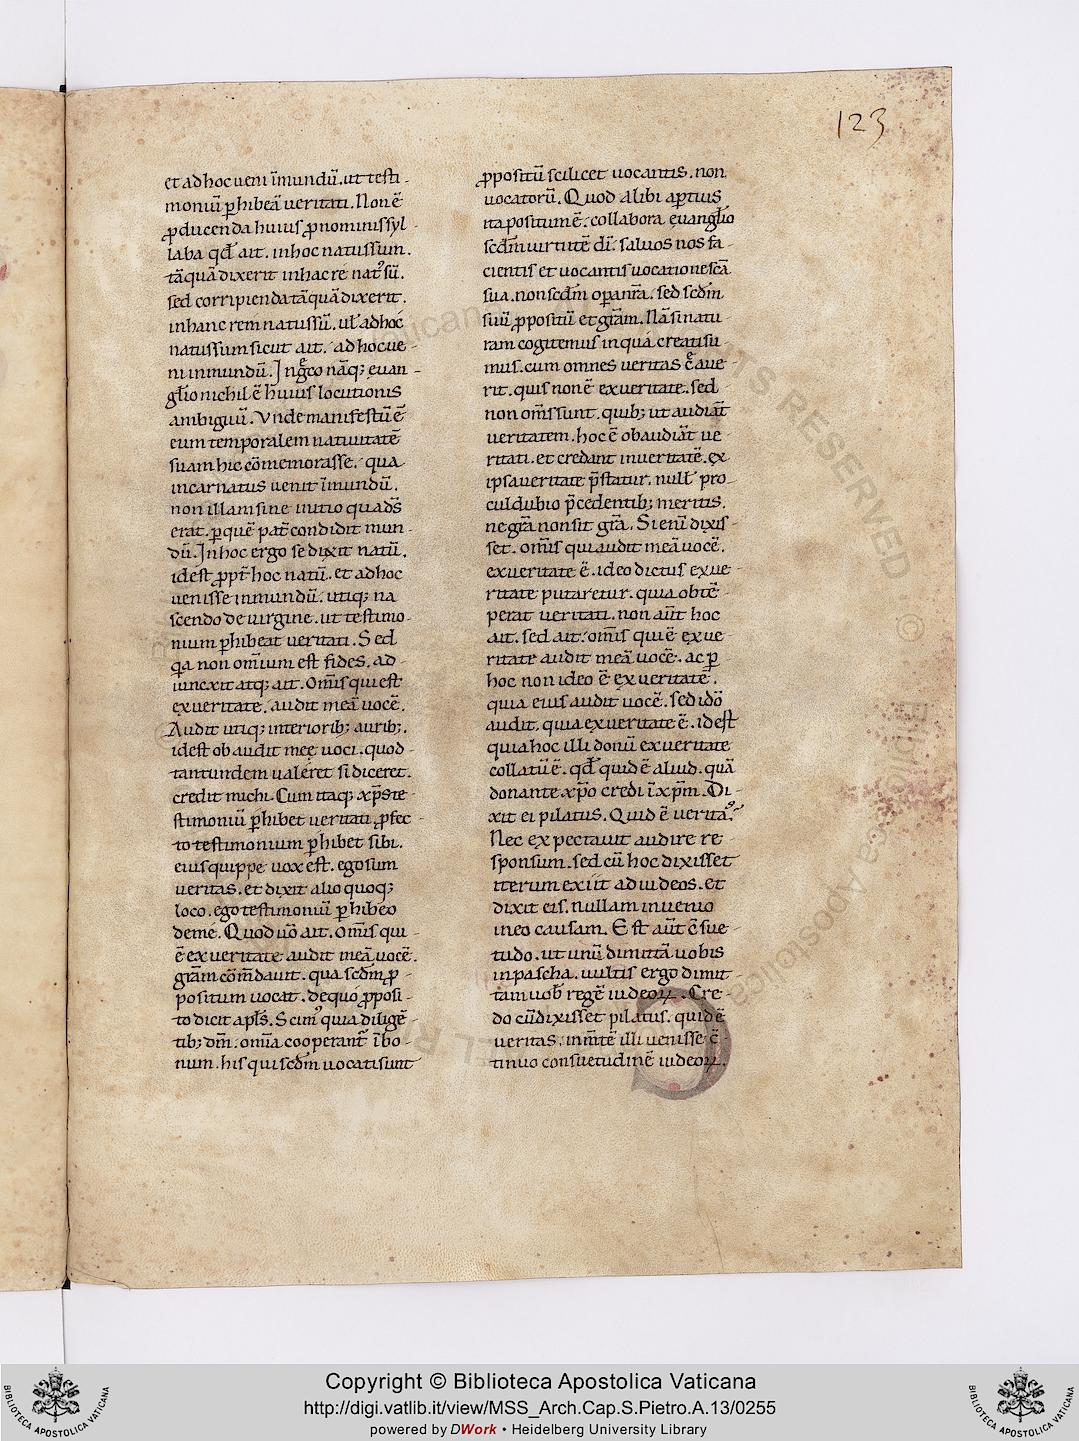 123
et ad hoc ueni ĩmundũ. ut testi-
moniũ ꝑhibeã ueritati. Non ẽ
ꝓducenda huius ꝓnominis syl-
laba qđ ait. in hoc natus sum.
tãquã dixerit in hac re natꝰ sũ.
sed corripienda tãquã dixerit.
in hanc rem natus sũ. ul̃ ad hoc
natus sum sicut ait. ad hoc ue-
ni in mundũ. In greco nãq; ęuan-
gl̃io nichil ẽ huius locutionis
ambiguũ. Vnde manifestũ ẽ
eum temporalem natiuitatẽ
suam hic cõmemorasse. qua
incarnatus uenit ĩmundũ.
non illam sine initio qua ds̃
erat. ꝑ quẽ pat̃ condidit mun-
dũ. In hoc ergo se dixit natũ.
id est ꝓpt̃ hoc natũ. et ad hoc
uenisse in mundũ. utiq; na
scendo de uirgine. ut testimo-
nium ꝑhibeat ueritati. Sed
qa non omĩum est fides. ad-
iunexit atq; ait. Omĩs qui est
ex ueritate. audit meã uocẽ.
Audit utiq; interiorib; aurib;.
id est obaudit meę uoci. quod
tantundem ualeret si diceret.
credit michi. Cum itaq; xp̃s te-
stimoniũ ꝑhibet ueritati ꝓfec-
to testimonium ꝑhibet sibi.
eius quippe uox est. ego sum
ueritas. et dixit alio quoq;
loco. ego testimoniũ ꝑhibeo
de me. Quod uõ ait. omĩs qui
ẽ ex ueritate audit meã uocẽ.
grãm cõmẽdauit. qua scđm ꝓ-
positum uocat. de quo ꝓposi-
to dicit apl̃s. Scimꝰ quia diligẽ-
tib; dm̃. omĩa cooperant̃ ĩ bo-
num. his qui scđm uocati sunt
ꝓpositũ scilicet uocantis. non
uocatorũ. Quod alibi aꝑtius
ita positum ẽ. collabora ęuangl̃io
scđm uirtutẽ dĩ. saluos nos fa-
cientis et uocantis uocatione scã
sua. non scđm oꝑa nr̃a. sed scđm
suũ ꝓpositũ et grãm. Nã si natu
ram cogitemus in qua creati su
mus. cum omnes ueritas creaue
rit. quis non ẽ ex ueritate. sed
non om̃s sunt. quib; ut audiãt
ueritatem. hoc ẽ obaudiãt ue
ritati. et credant in ueritatẽ. ex
ipsa ueritate p̃statur. null̃ pro-
culdubio p̃cedentib; meritis.
ne grã non sit grã. Si enĩ dixis-
set. omĩs qui audit meã uocẽ.
ex ueritate ẽ. ideo dictus ex ue-
ritate putaretur. quia obtẽ-
perat ueritati. non aũt hoc
ait. sed ait. omĩs qui ẽ ex ue-
ritate audit meã uocẽ. ac ꝑ
hoc non ideo ẽ ex ueritate.
quia eius audit uocẽ. sed idõ
audit. quia ex ueritate ẽ. id est
quia hoc illi donũ ex ueritate
collatũ ẽ. qđ quid ẽ aliud. quã
donante xp̃o credi ĩ xp̃m. Di-
xit ei pilatus. Quid ẽ ueritaˢ?
Nec expectauit audire re
sponsum. sed cũ hoc dixisset
iterum exiit ad iudeos. et
dixit eis. nullam inuenio
in eo causam. Est aũt c̃sue-
tudo. ut unũ dimittã uobis
in pascha. uultis ergo dimit-
tam uob̃ regẽ iudeoꝝ. Cre-
do cũ dixisset pilatus. quid ẽ
ueritas. in m̃tẽ illi uenisse c̃-
tinuo consuetudinẽ iudeoꝝ.
Copyright © Biblioteca Apostolica Vaticana
http://digi.vatlib.it/view/MSS_Arch.Cap.S.Pietro.A.13/0255
powered by DWork • Heidelberg University Library
BIBLIOTECA APOSTOLICA VATICANA
BIBLIOTECA APOSTOLICA VATICANA